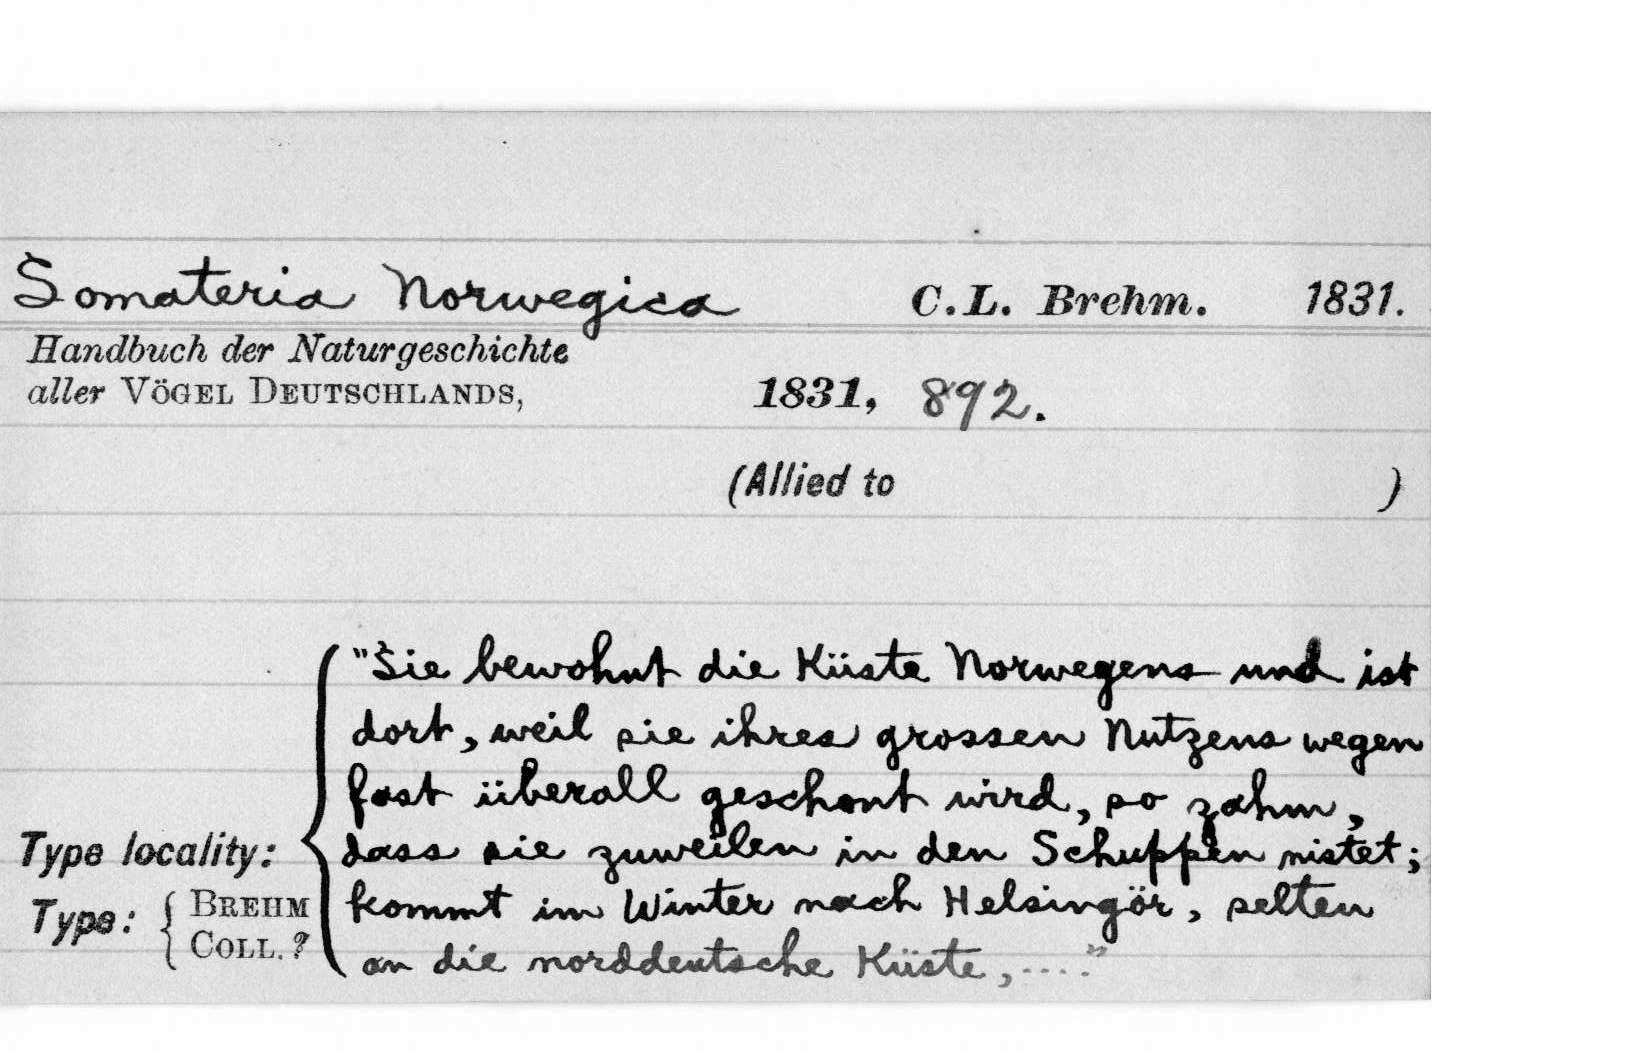 Somateria Norwegica C.L. Brehm. 1831.
Handbuch der Naturgeschichte
aller VÖGEL DEUTSCHLANDS, 1831, 892.
(Allied to )
"Sie bewohnt die Küste Norwegens und ist
dort, weil sie ihres grossen Nutzens wegen
fast überall geschont wird, so zahm,
Type locality: dass sie zuweilen in den Schuppen nistet;
Type: { BREHM COLL. ? kommt im Winter nach Helsingör, selten
an die norddeutsche Küste,...."